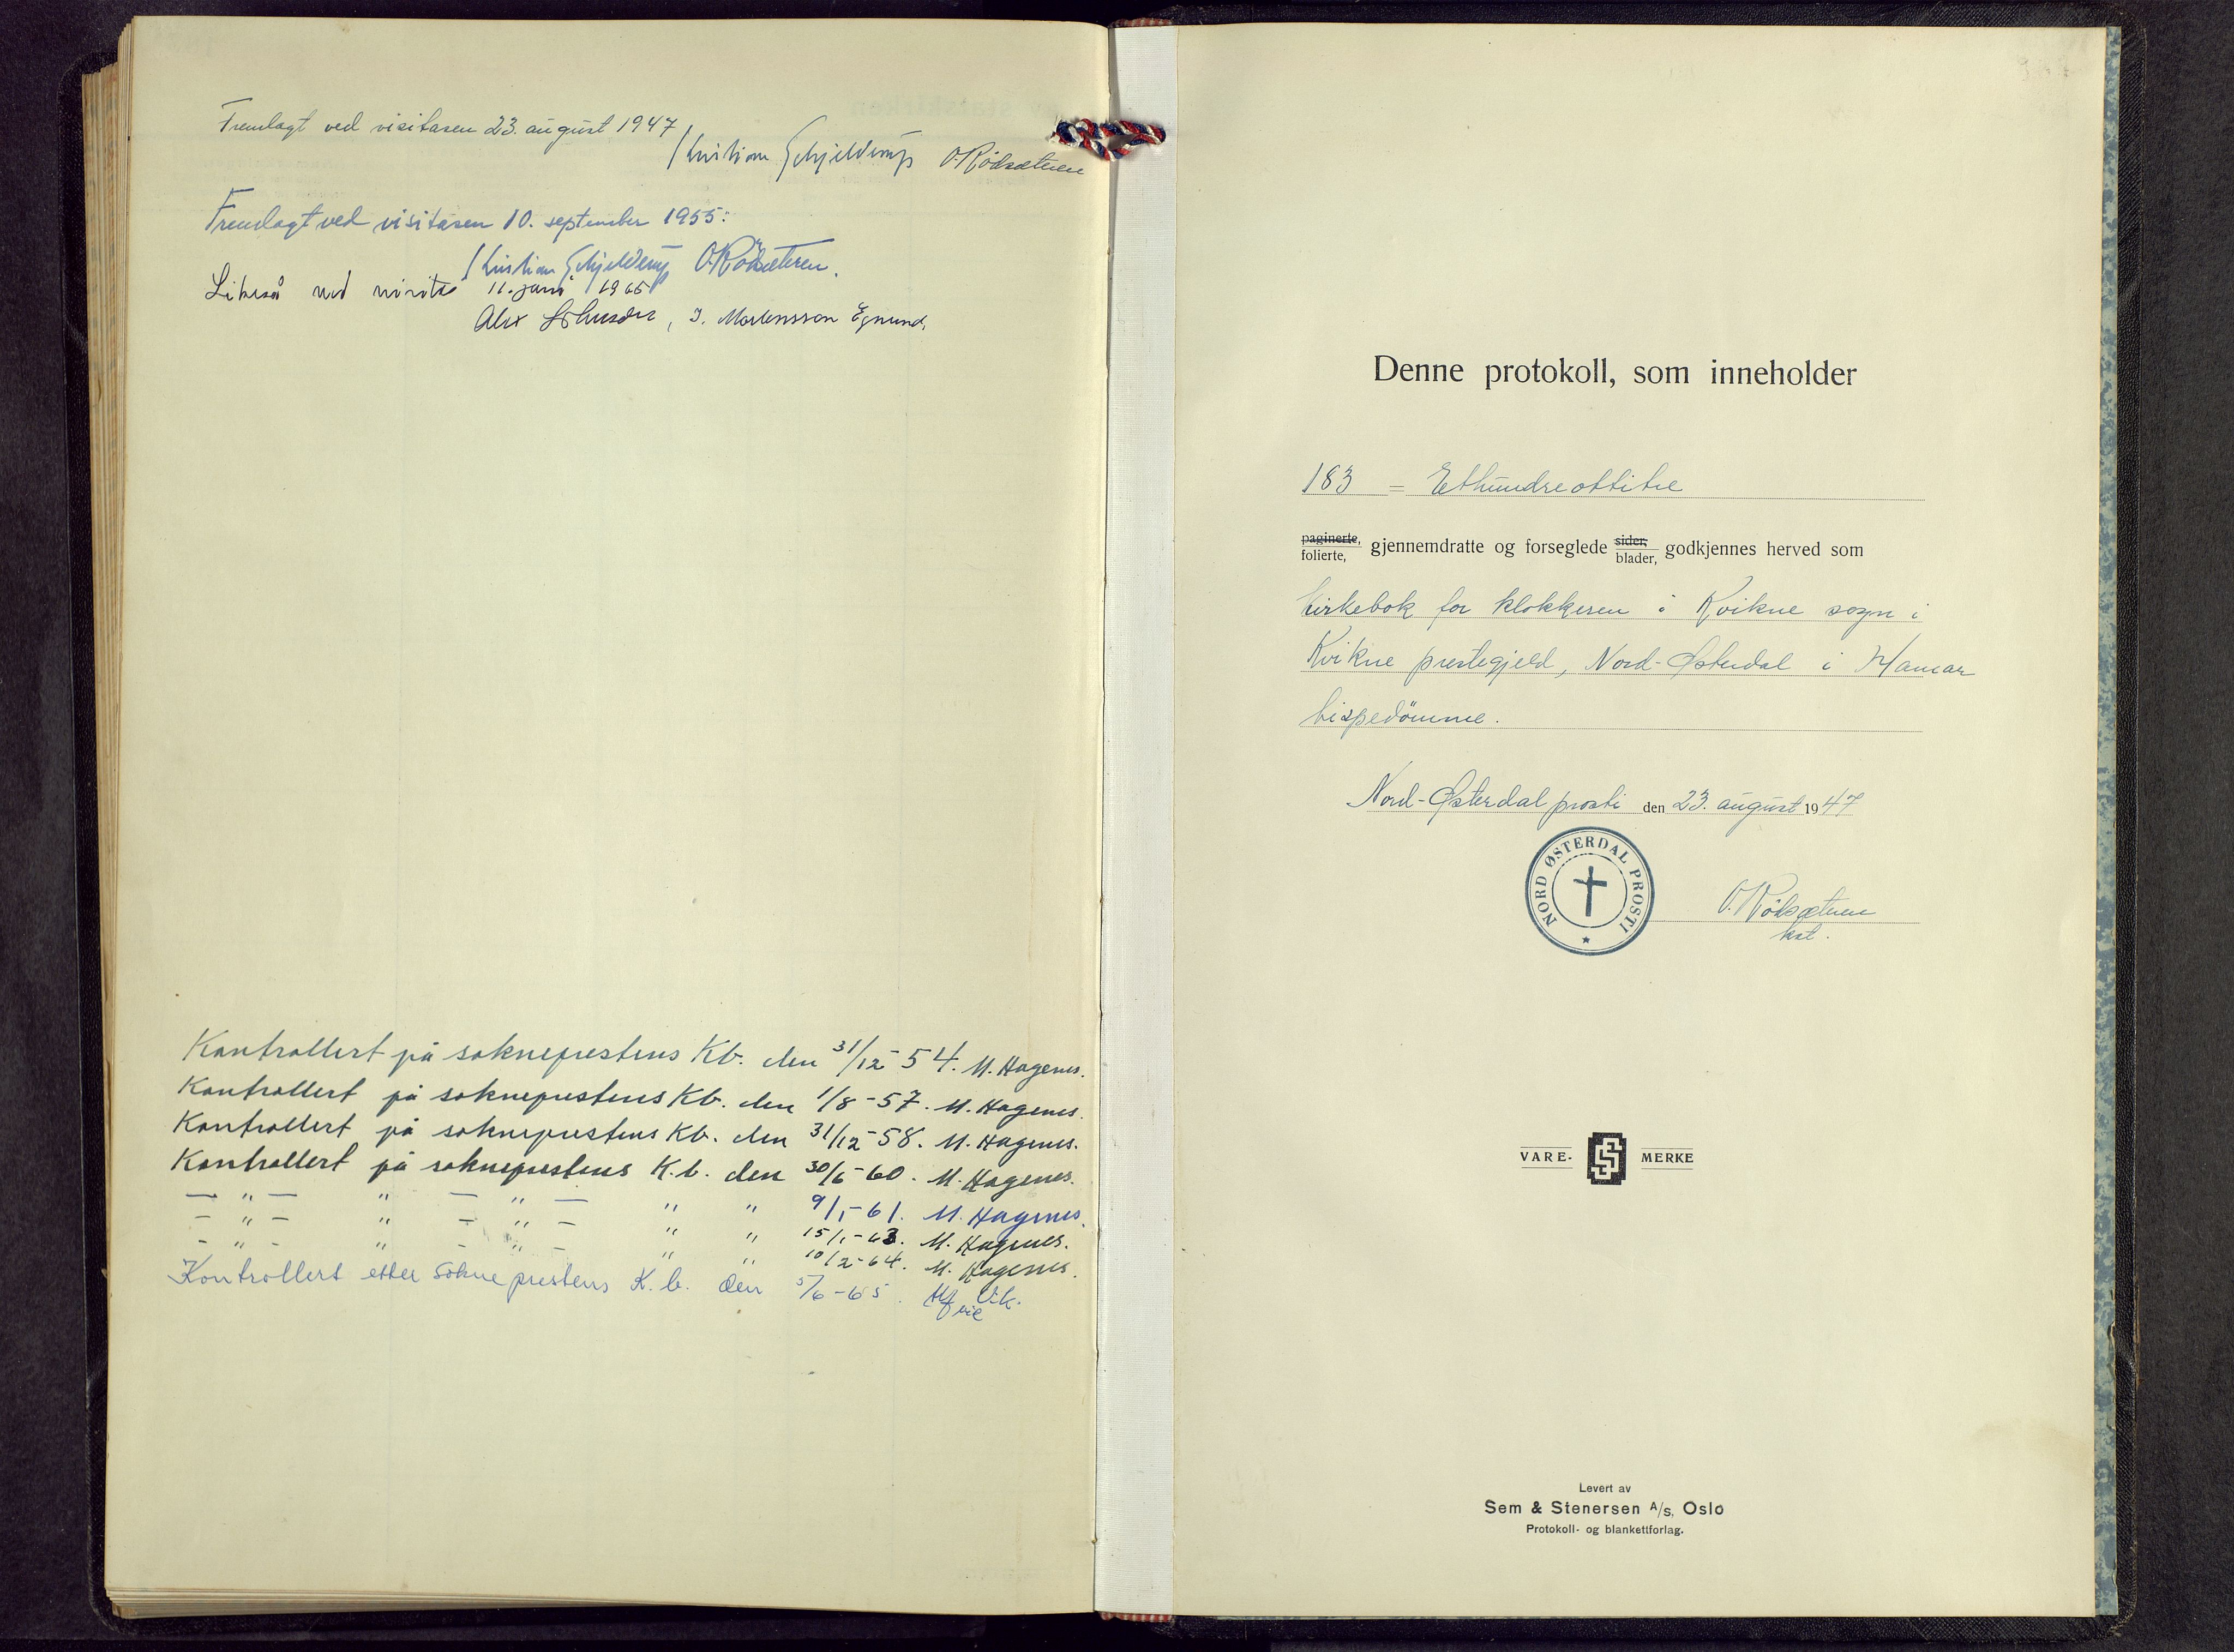 Fremlagt ved visitasen 23. august 1947
Kristian Schjelderup O. Rödsæteren
Fremlagt ved visitasen 10. september 1955:
Kristian Schjelderup O. Rödsæteren.
Likeså ved visitas 11. juni 1966
Alex Johnson, I. Mortensson Egnund.
Kontrollert på sokneprestens Kb. den 31/12-54. M. Hagenes.
Kontrollert på sokneprestens Kb. den 1/8-57. M. Hagenes.
Kontrollert på sokneprestens Kb. den 31/12-58. M. Hagenes.
Kontrollert på sokneprestens K.b. den 30/6-60. M. Hagenes.
— " — " — " — " " 9/1-61. M. Hagenes.
— " — " — " — " " 15/1-63. M. Hagenes.
- " - " - " - " " 10/2-64. M. Hagenes.
Kontrollert etter Sokneprestens K.b. den 5/6-65. Vik.
Denne protokoll, som inneholder
183 = Etthundreottitre
paginerte, folierte, gjennemdratte og forseglede sider, blader, godkjennes herved som
kirkebok for klokkeren i Kvikne sogn i
Kvikne prestegjeld, Nord-Østerdal i Hamar
bispedömme.
Nord-Østerdal prosti den 23. august 1947
NORD ØSTERDAL PROSTI
O. Rödsæteren
kst.
VARE- MERKE
Levert av
Sem & Stenersen A/s, Oslo
Protokoll- og blankettforlag.